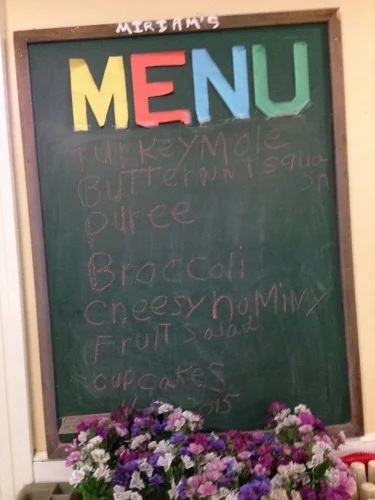 MIRIAM'S
MENU
TurKeyMole
BuTTerNNT squa
sh
puree
Broccoli
cheesy hoMiNy
FruiT salad
cupcakes
15